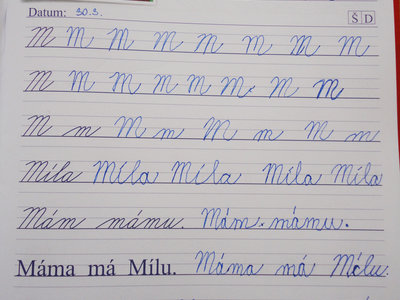 Datum: 30.3. Š D
M M M M M M M M
M M M M M M M M
M m M m M m M m
Míla Míla Míla Míla Míla
Mám mámu. Mám mámu.
Máma má Mílu. Máma má Mílu.